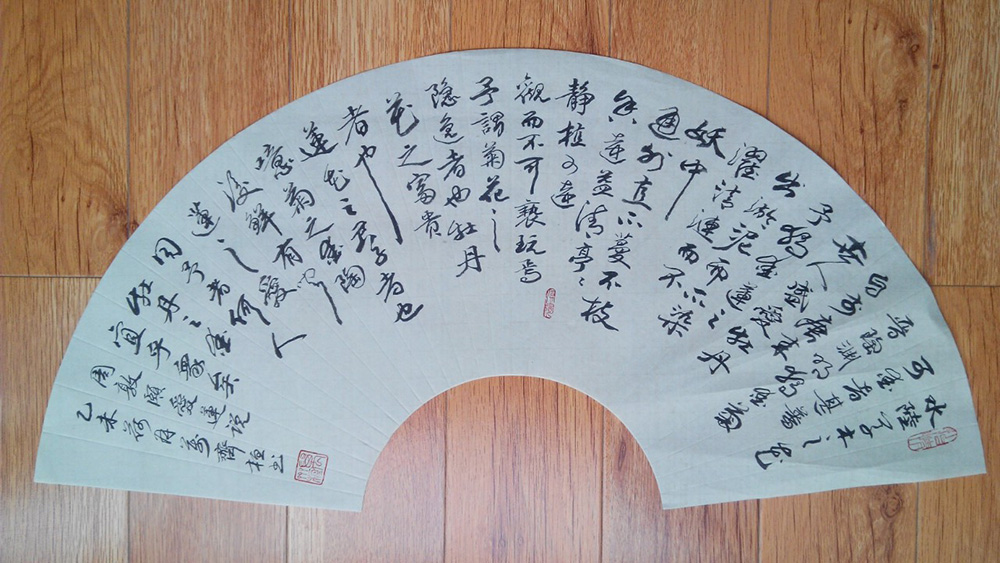 水陸草木之花
可愛者甚蕃
晉陶淵明獨愛菊
自李唐來
世人盛愛牡丹
予獨愛蓮之
出淤泥而不染
濯清漣而不
妖中
通外直不蔓不枝
香遠益清亭亭
静植可遠
觀而不可褻玩焉
予謂菊花之
隱逸者也牡丹
花之富貴
者也
蓮花之君子者也
噫菊之愛陶
後鮮有聞
蓮之愛
同予者何人
牡丹之愛
宜乎衆矣
周敦頤愛蓮說
乙未荷月萬齊桓書